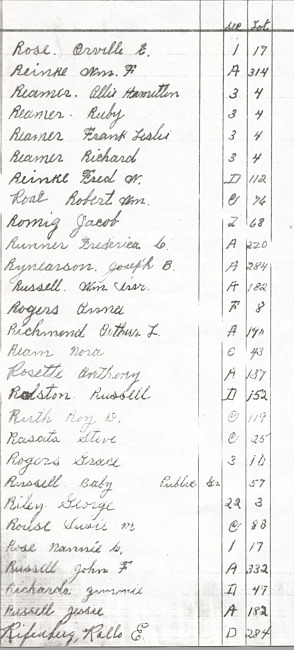 Sec Lot
Rose. Orville E. 1 17
Reinke Wm. F A 314
Reamer. Allie Hamilton 3 4
Reamer. Ruby 3 4
Reamer Frank Leslie 3 4
Reamer Richard 3 4
Reinke Fred W. D 112
Robert Wm. C 76
Romig Jacob 2 68
Runner Frederica C. A 220
Rynearson. Joseph B. A 284
Russell. Wm A 182
Rogers Anna F 8
Richmond Arthur L. A
Ream Nora C 43
Rosette Anthony A 137
Ralston Russell D 152
Ruth Roy D. C 119
Rasata Steve C 25
Rogers Grace 3 10
Russell Baby Public Gr 57
Riley George 22 3
Rouse Susie M C 88
Rose Nannie C. 1 17
Russell John F A 332
Richards D 47
Bissell Jessie A 182
Rifenberg, Rello E. D 284